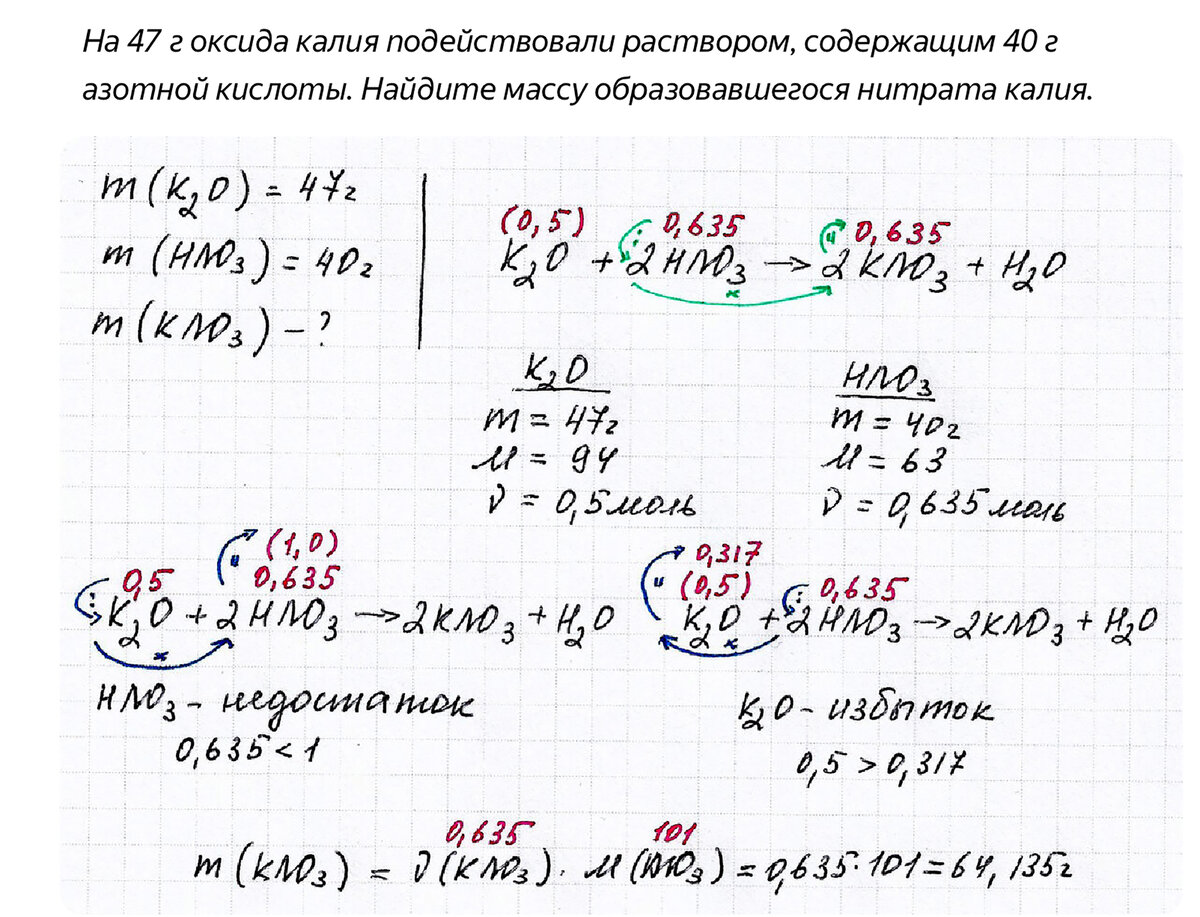 На 47 г оксида калия подействовали раствором, содержащим 40 г
азотной кислоты. Найдите массу образовавшегося нитрата калия.
m (K₂O) = 47г
m (HNO₃) = 40г
m (KNO₃) - ?
(0,5) : 0,635 и 0,635
K₂O + 2HNO₃ → 2KNO₃ + H₂O
×
K₂O
m = 47г
M = 94
ν = 0,5 моль
HNO₃
m = 40г
M = 63
ν = 0,635 моль
и (1,0)
: 0,5 0,635
K₂O + 2HNO₃ → 2KNO₃ + H₂O
×
HNO₃ - недостаток
0,635 < 1
0,317
и (0,5) : 0,635
K₂O + 2HNO₃ → 2KNO₃ + H₂O
×
K₂O - избыток
0,5 > 0,317
0,635 101
m (KNO₃) = ν (KNO₃) · M (KNO₃) = 0,635 · 101 = 64,135г